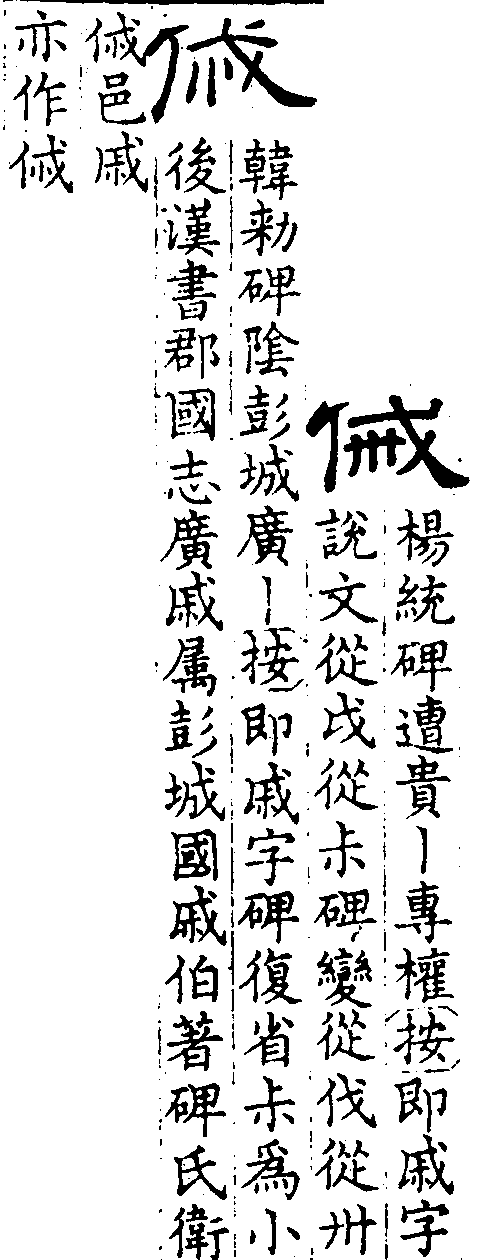 楊統碑遭貴丨專權按即戚字
說文從戉從尗碑變從伐從卅
韓勑碑陰彭城廣丨按即戚字碑復省尗爲小
後漢書郡國志廣戚属彭城國戚伯著碑氏衛
邑戚
亦作